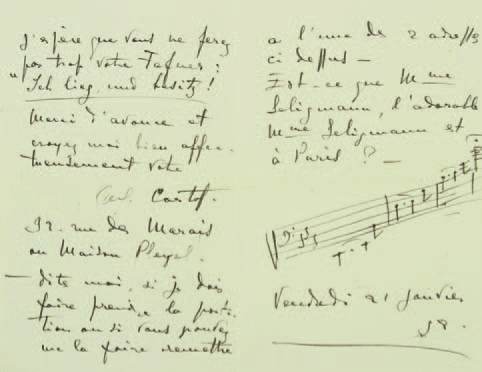 J'espère que vous ne ferez
pas trop votre Fafner :
"Ich lieg und besitz !
Merci d'avance et
croyez moi bien affec-
tueusement votre
32 rue des Marais
ou Maison Pleyel.
— dites moi, si je dois
faire prendre la parti-
tion ou si vous pouvez
me la faire remettre
a l'une des 2 adresses
ci dessus —
Est-ce que Mme
Seligmann, l'adorable
Mme Seligmann est
à Paris ? —
Vendredi 21 janvier
98.